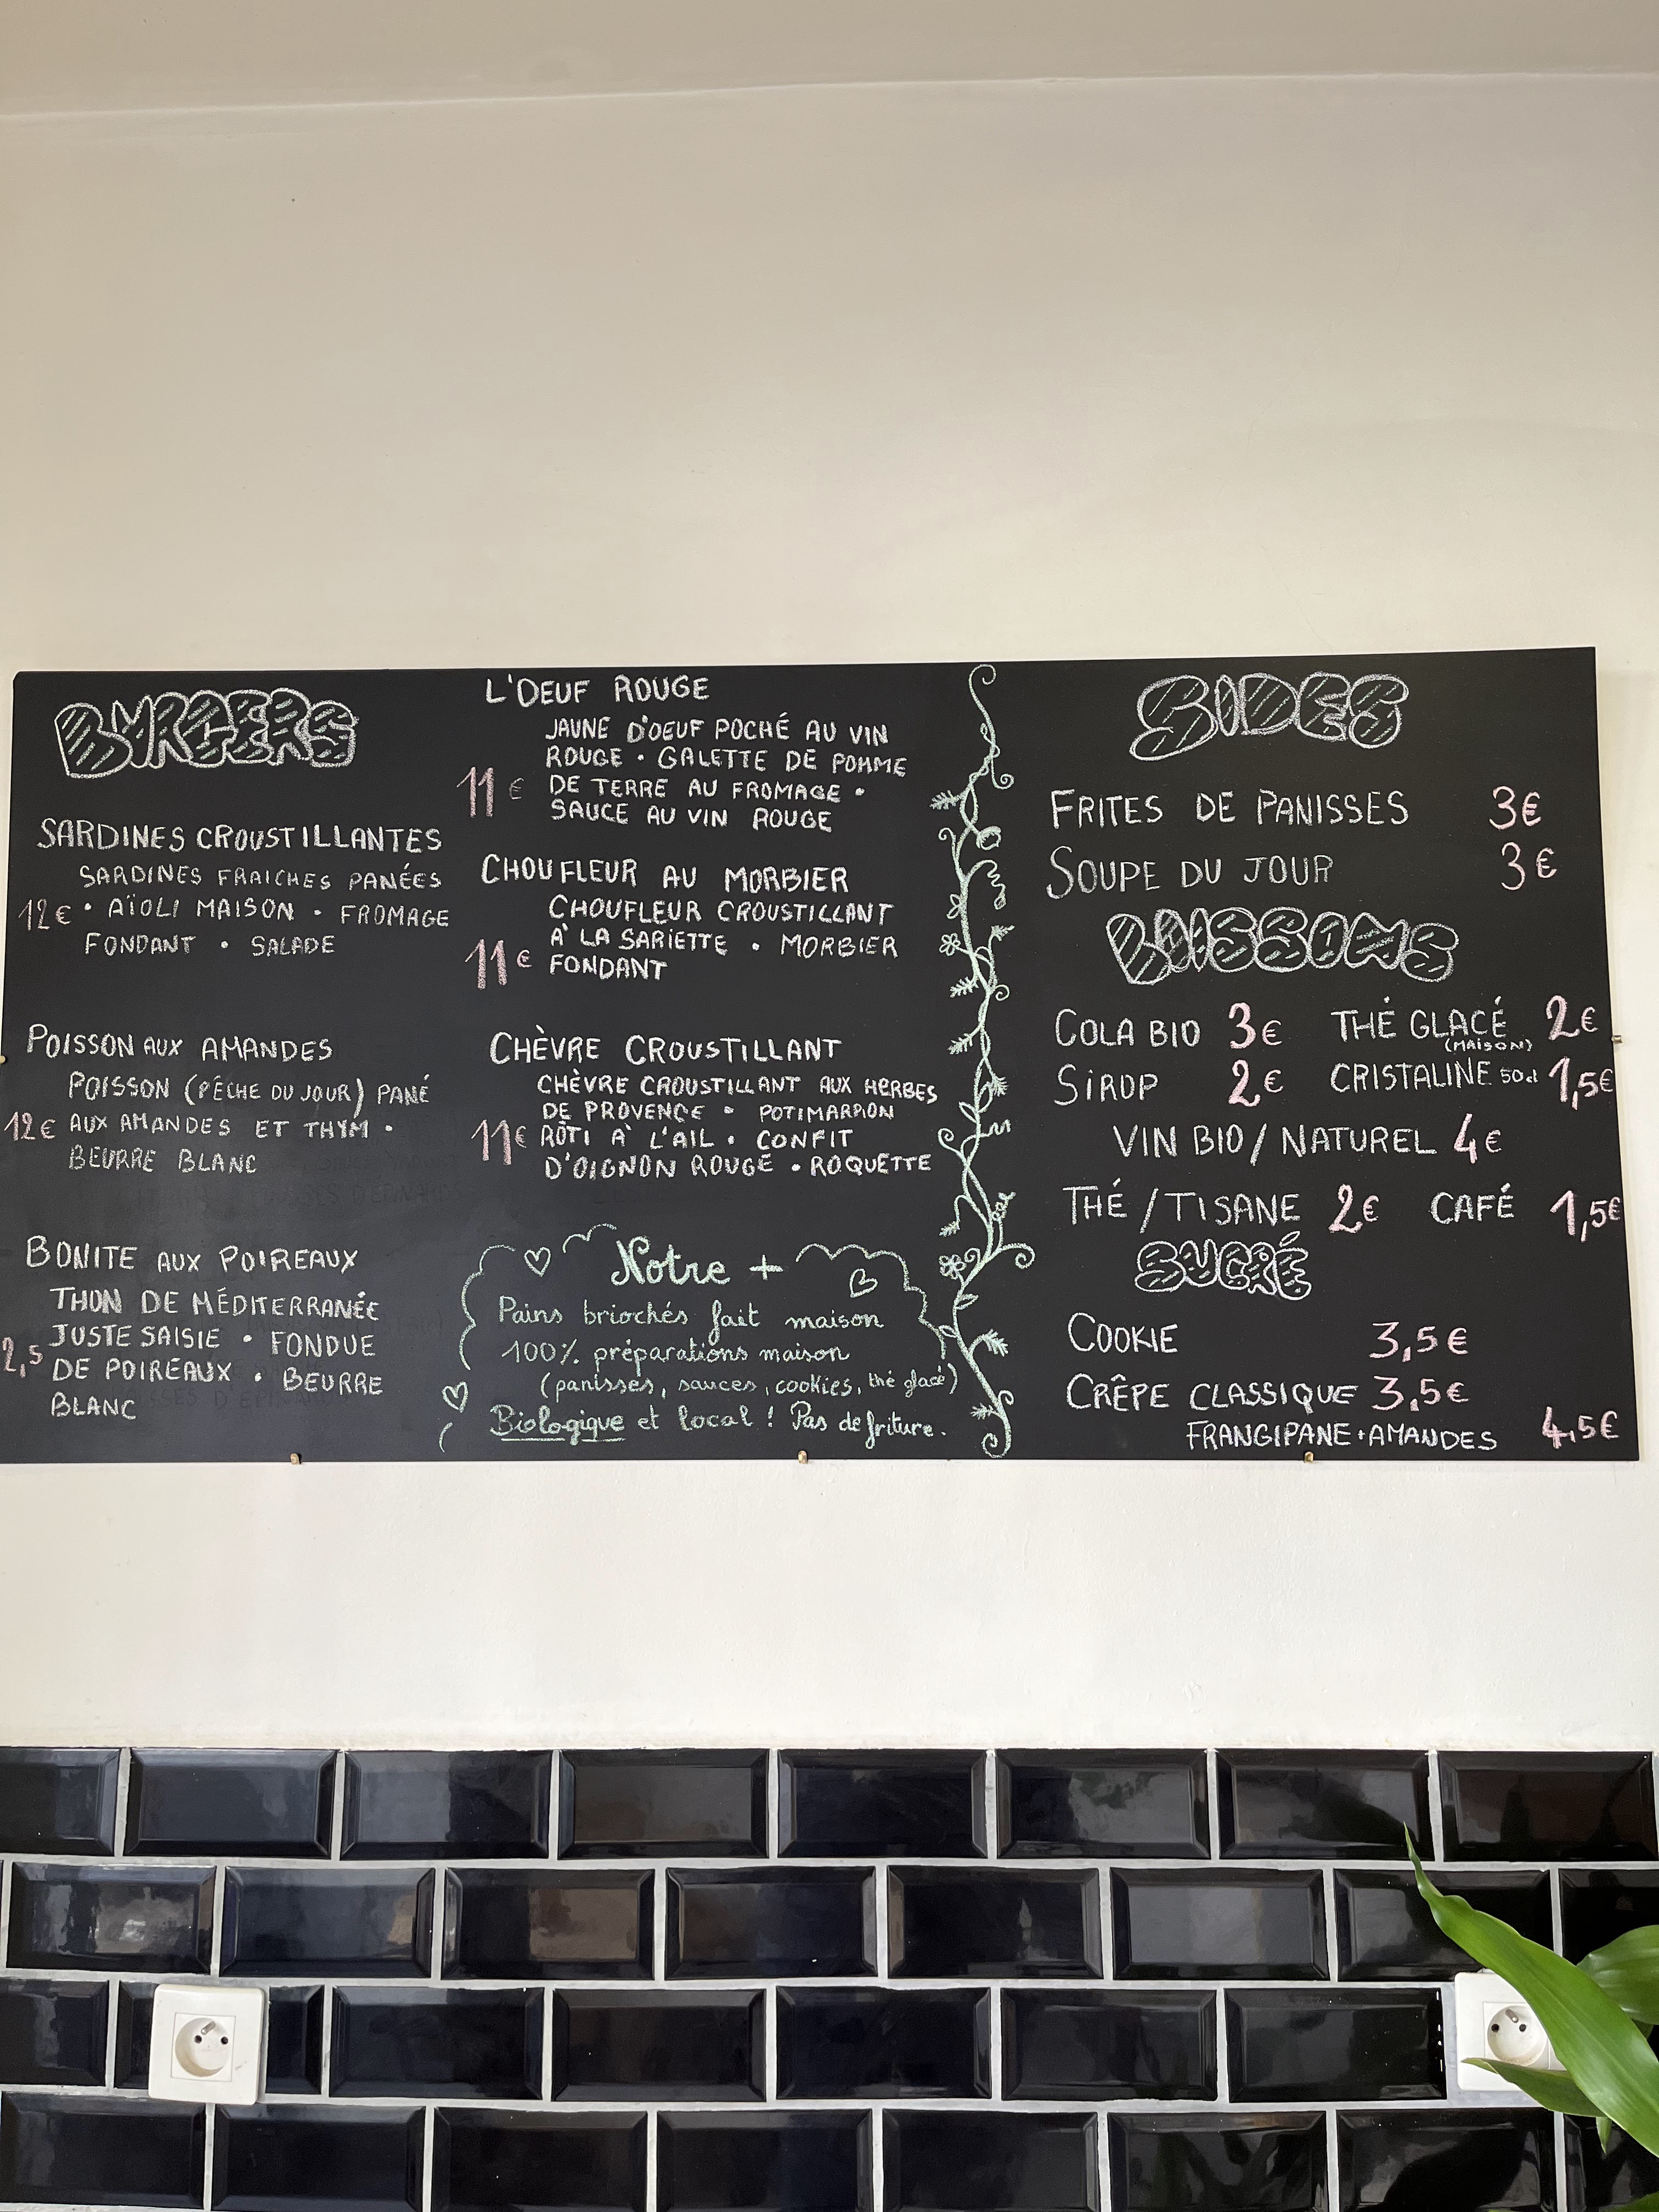 BURGERS
SARDINES CROUSTILLANTES
SARDINES FRAICHES PANÉES
12€ • AÏOLI MAISON • FROMAGE
FONDANT • SALADE
POISSON AUX AMANDES
POISSON (PÊCHE DU JOUR) PANÉ
12€ AUX AMANDES ET THYM •
BEURRE BLANC
BONITE AUX POIREAUX
THON DE MÉDITERRANÉE
JUSTE SAISIE • FONDUE
2,5 DE POIREAUX • BEURRE
BLANC
L'OEUF ROUGE
JAUNE D'OEUF POCHÉ AU VIN
ROUGE • GALETTE DE POMME
11€ DE TERRE AU FROMAGE •
SAUCE AU VIN ROUGE
CHOUFLEUR AU MORBIER
CHOUFLEUR CROUSTILLANT
À LA SARIETTE • MORBIER
11€ FONDANT
CHÈVRE CROUSTILLANT
CHÈVRE CROUSTILLANT AUX HERBES
DE PROVENCE • POTIMARRON
11€ RÔTI À L'AIL • CONFIT
D'OIGNON ROUGE • ROQUETTE
Notre +
Pains briochés fait maison
100% préparations maison
(panisses, sauces, cookies, thé glacé)
Biologique et local ! Pas de friture.
SIDES
FRITES DE PANISSES 3€
SOUPE DU JOUR 3€
BOISSONS
COLA BIO 3€ THÉ GLACÉ 2€
(MAISON)
SIROP 2€ CRISTALINE 50cl 1,5€
VIN BIO / NATUREL 4€
THÉ / TISANE 2€ CAFÉ 1,5€
SUCRÉ
COOKIE 3,5€
CRÊPE CLASSIQUE 3,5€
FRANGIPANE + AMANDES 4,5€